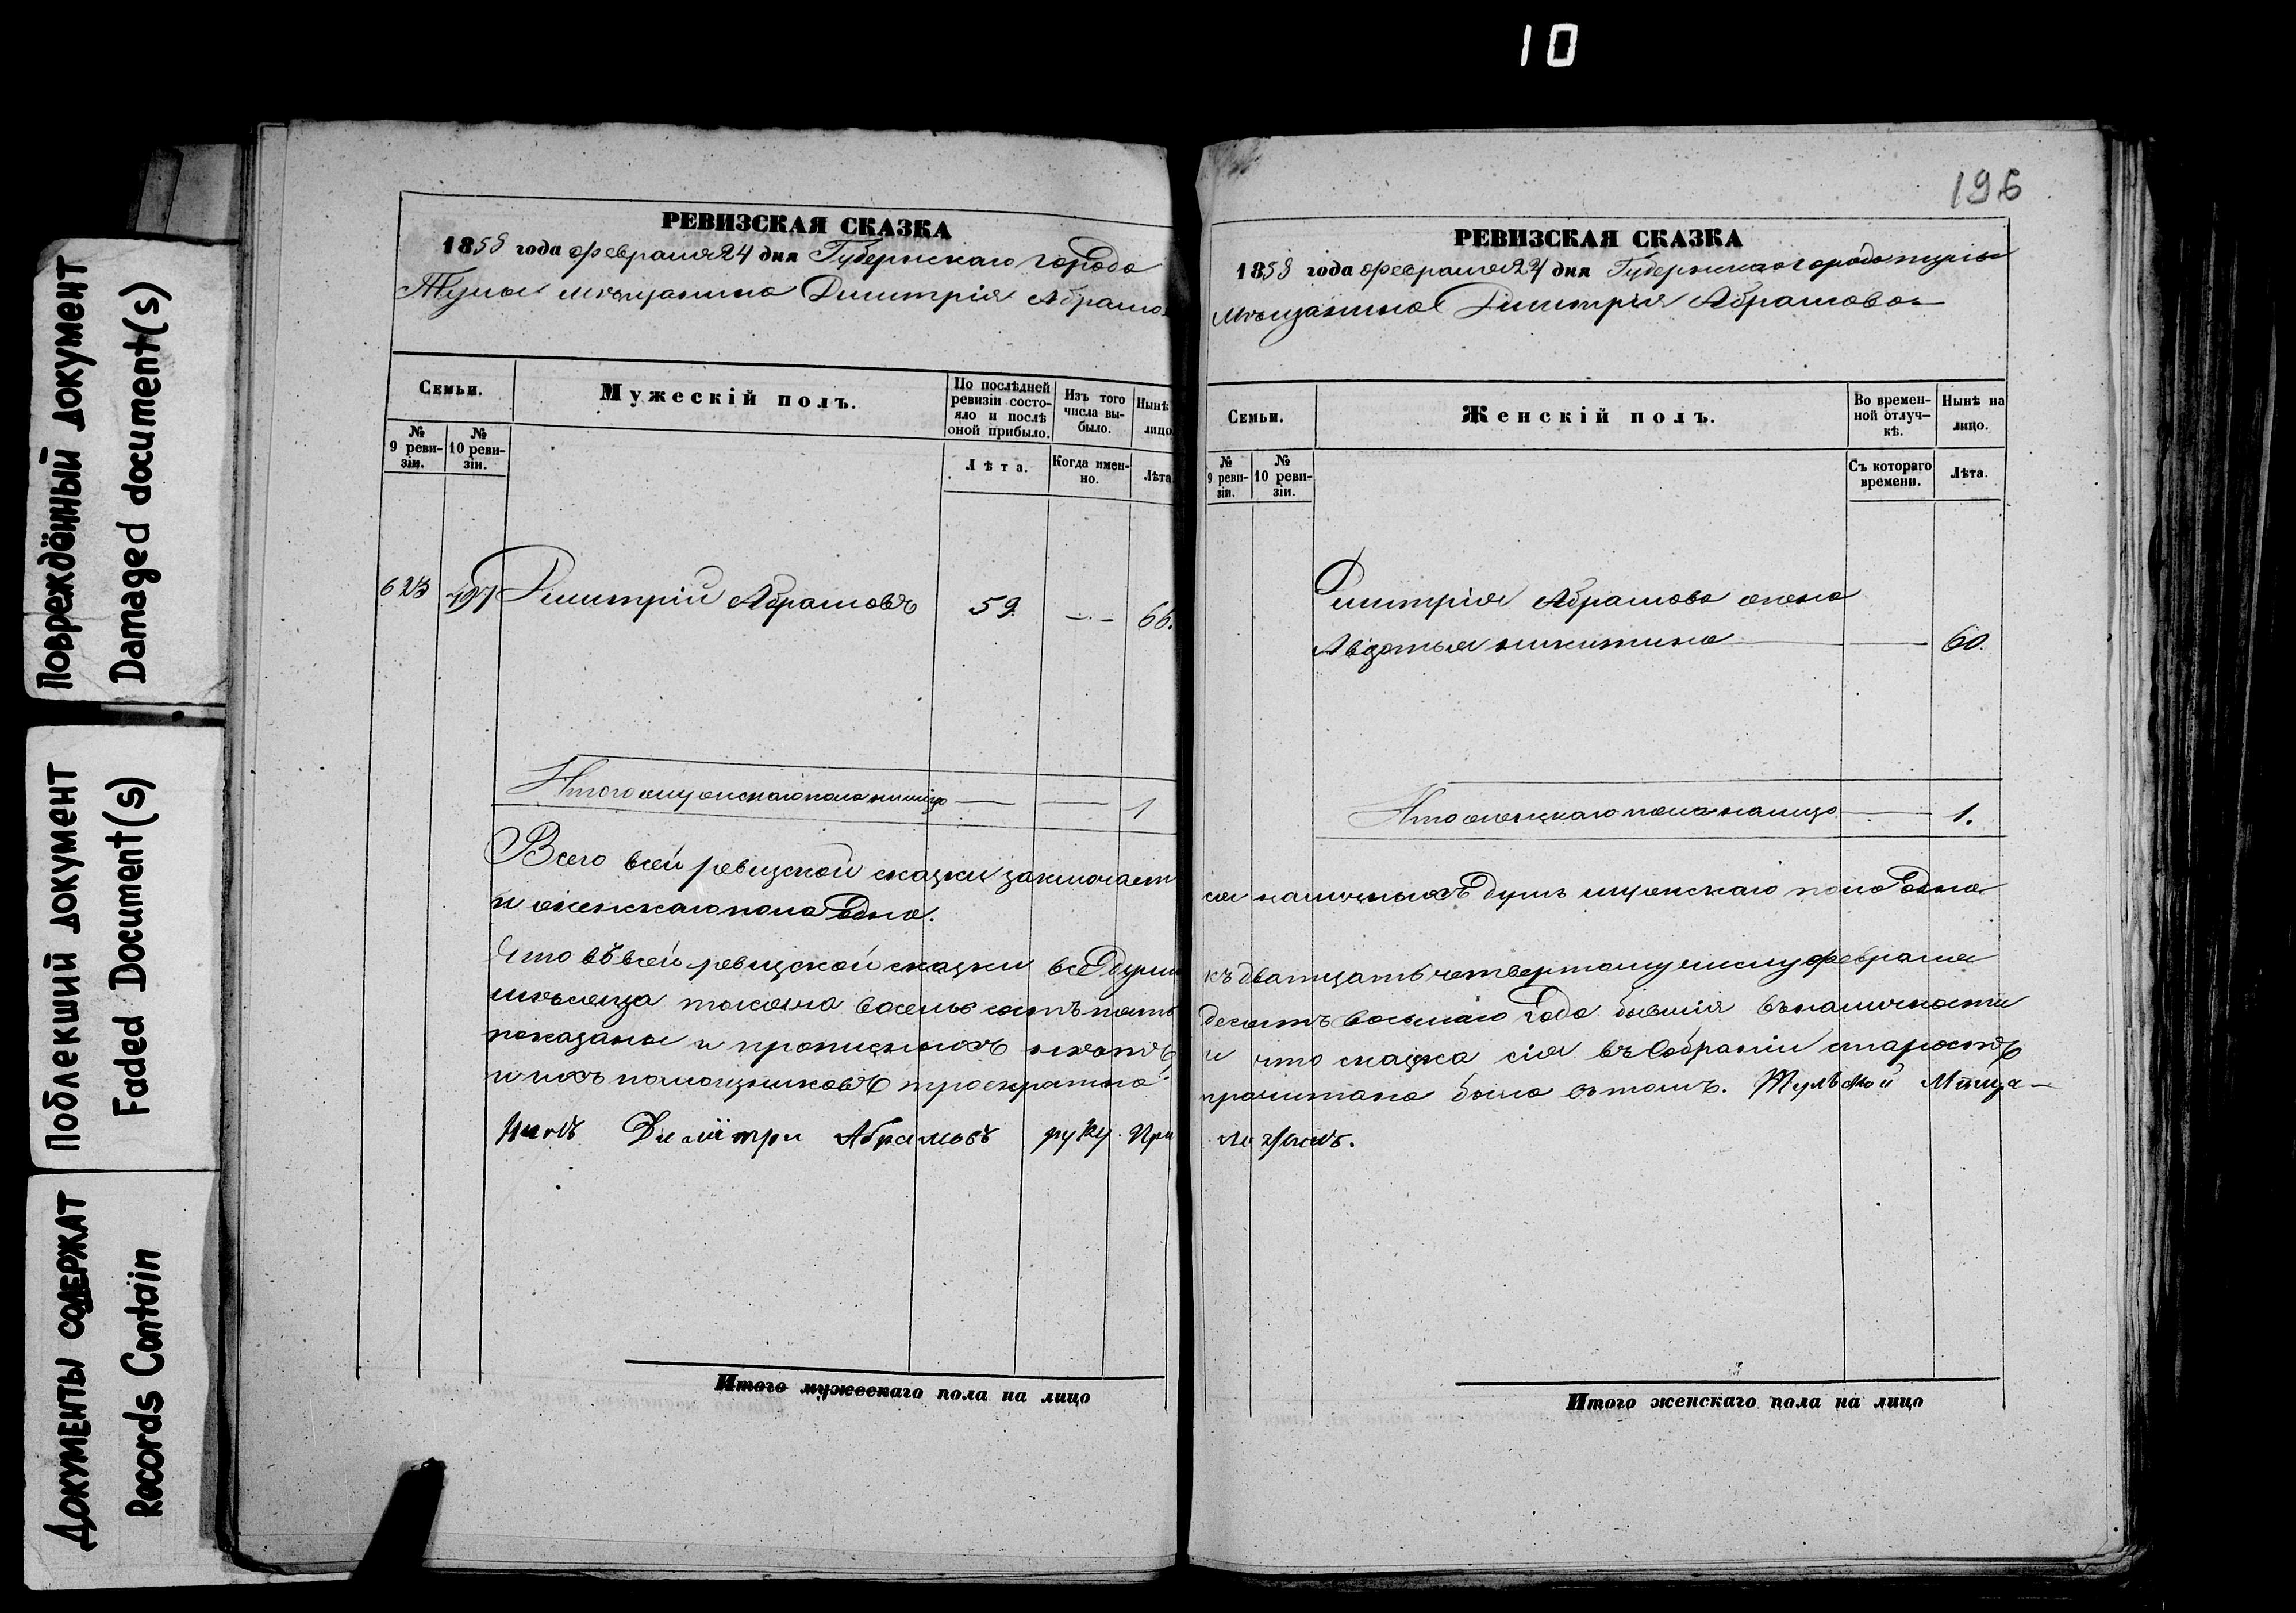 10
Повреждённый документ
Damaged document(s)
Поблекший документ
Faded Document(s)
Документы содержат
Records Contain
РЕВИЗСКАЯ СКАЗКА
1858 года февраля 24 дня Губернскаго города
Тулы мѣщанина Димитрія Абрамо
Семьи.
№ 9 реви-зіи.
№ 10 реви-зіи.
Мужескій полъ.
По послѣдней ревизіи состо-яло и послѣ оной прибыло.
Изъ того числа вы-было.
Нынѣ лицо
Лѣта.
Когда имен-но.
Лѣта
623 497 Димитрій Абрамовъ 59. — 66.
Итого мужскаго пола налицо — — 1
Всего всей ревизской сказки заключает
и женскаго пола одна.
Что въ всей ревизской сказки все души
мѣсяца тысяча восемь сотъ пять
показаны и прописныхъ нѣтъ
и ихъ помощниковъ троекратно
нинъ Димїтри Абрамовъ руку При
Итого мужескаго пола на лицо
196
РЕВИЗСКАЯ СКАЗКА
1858 года февраля 24 дня Губернскаго города тулы
мѣщанина Димитрія Абрамова
Семьи.
№ 9 реви-зіи.
№ 10 реви-зіи.
Женскій полъ.
Во времен-ной отлуч-кѣ.
Нынѣ на лицо.
Съ котораго времени.
Лѣта.
Димитрія Абрамова жена
Авдотья никитина — 60.
Итого женскаго пола налицо — 1.
ся наличныхъ душъ мужскаго пола одна
къ дватцать четвертому числу февраля
десятъ восьмаго года бывшія въ наличности
и что сказка сія въ Собраніи старостъ
прочитана была въ томъ. Тульской Мѣща-
ложилъ.
Итого женскаго пола на лицо